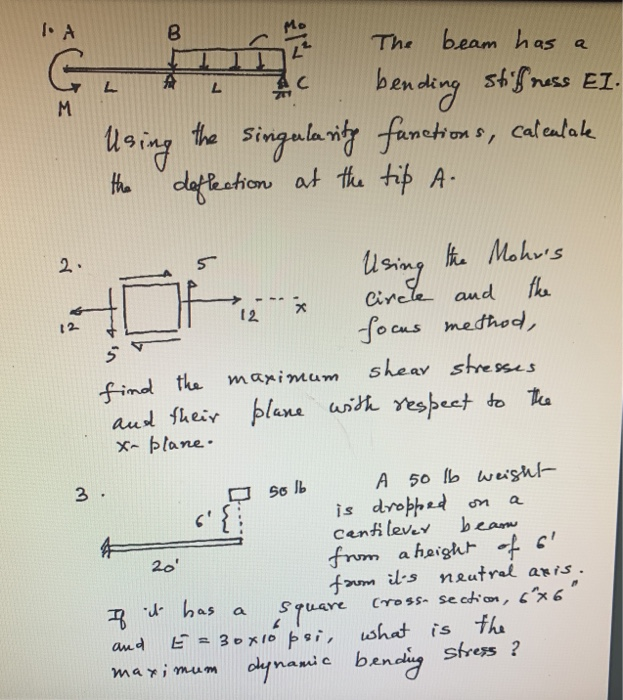 1. A B Mo/L² The beam has a
L A L C bending stiffness EI.
M
Using the singularity functions, calculate
the deflection at the tip A.
2. 5 Using the Mohr's
12 12 x circle and the
5 focus method,
find the maximum shear stresses
and their plane with respect to the
x-plane.
3. 50 lb A 50 lb weight
6' is dropped on a
cantilever beam
20' from a height of 6'
from it's neutral axis.
If it has a square cross-section, 6"x6"
and E = 30x10⁶ psi, what is the
maximum dynamic bending stress?